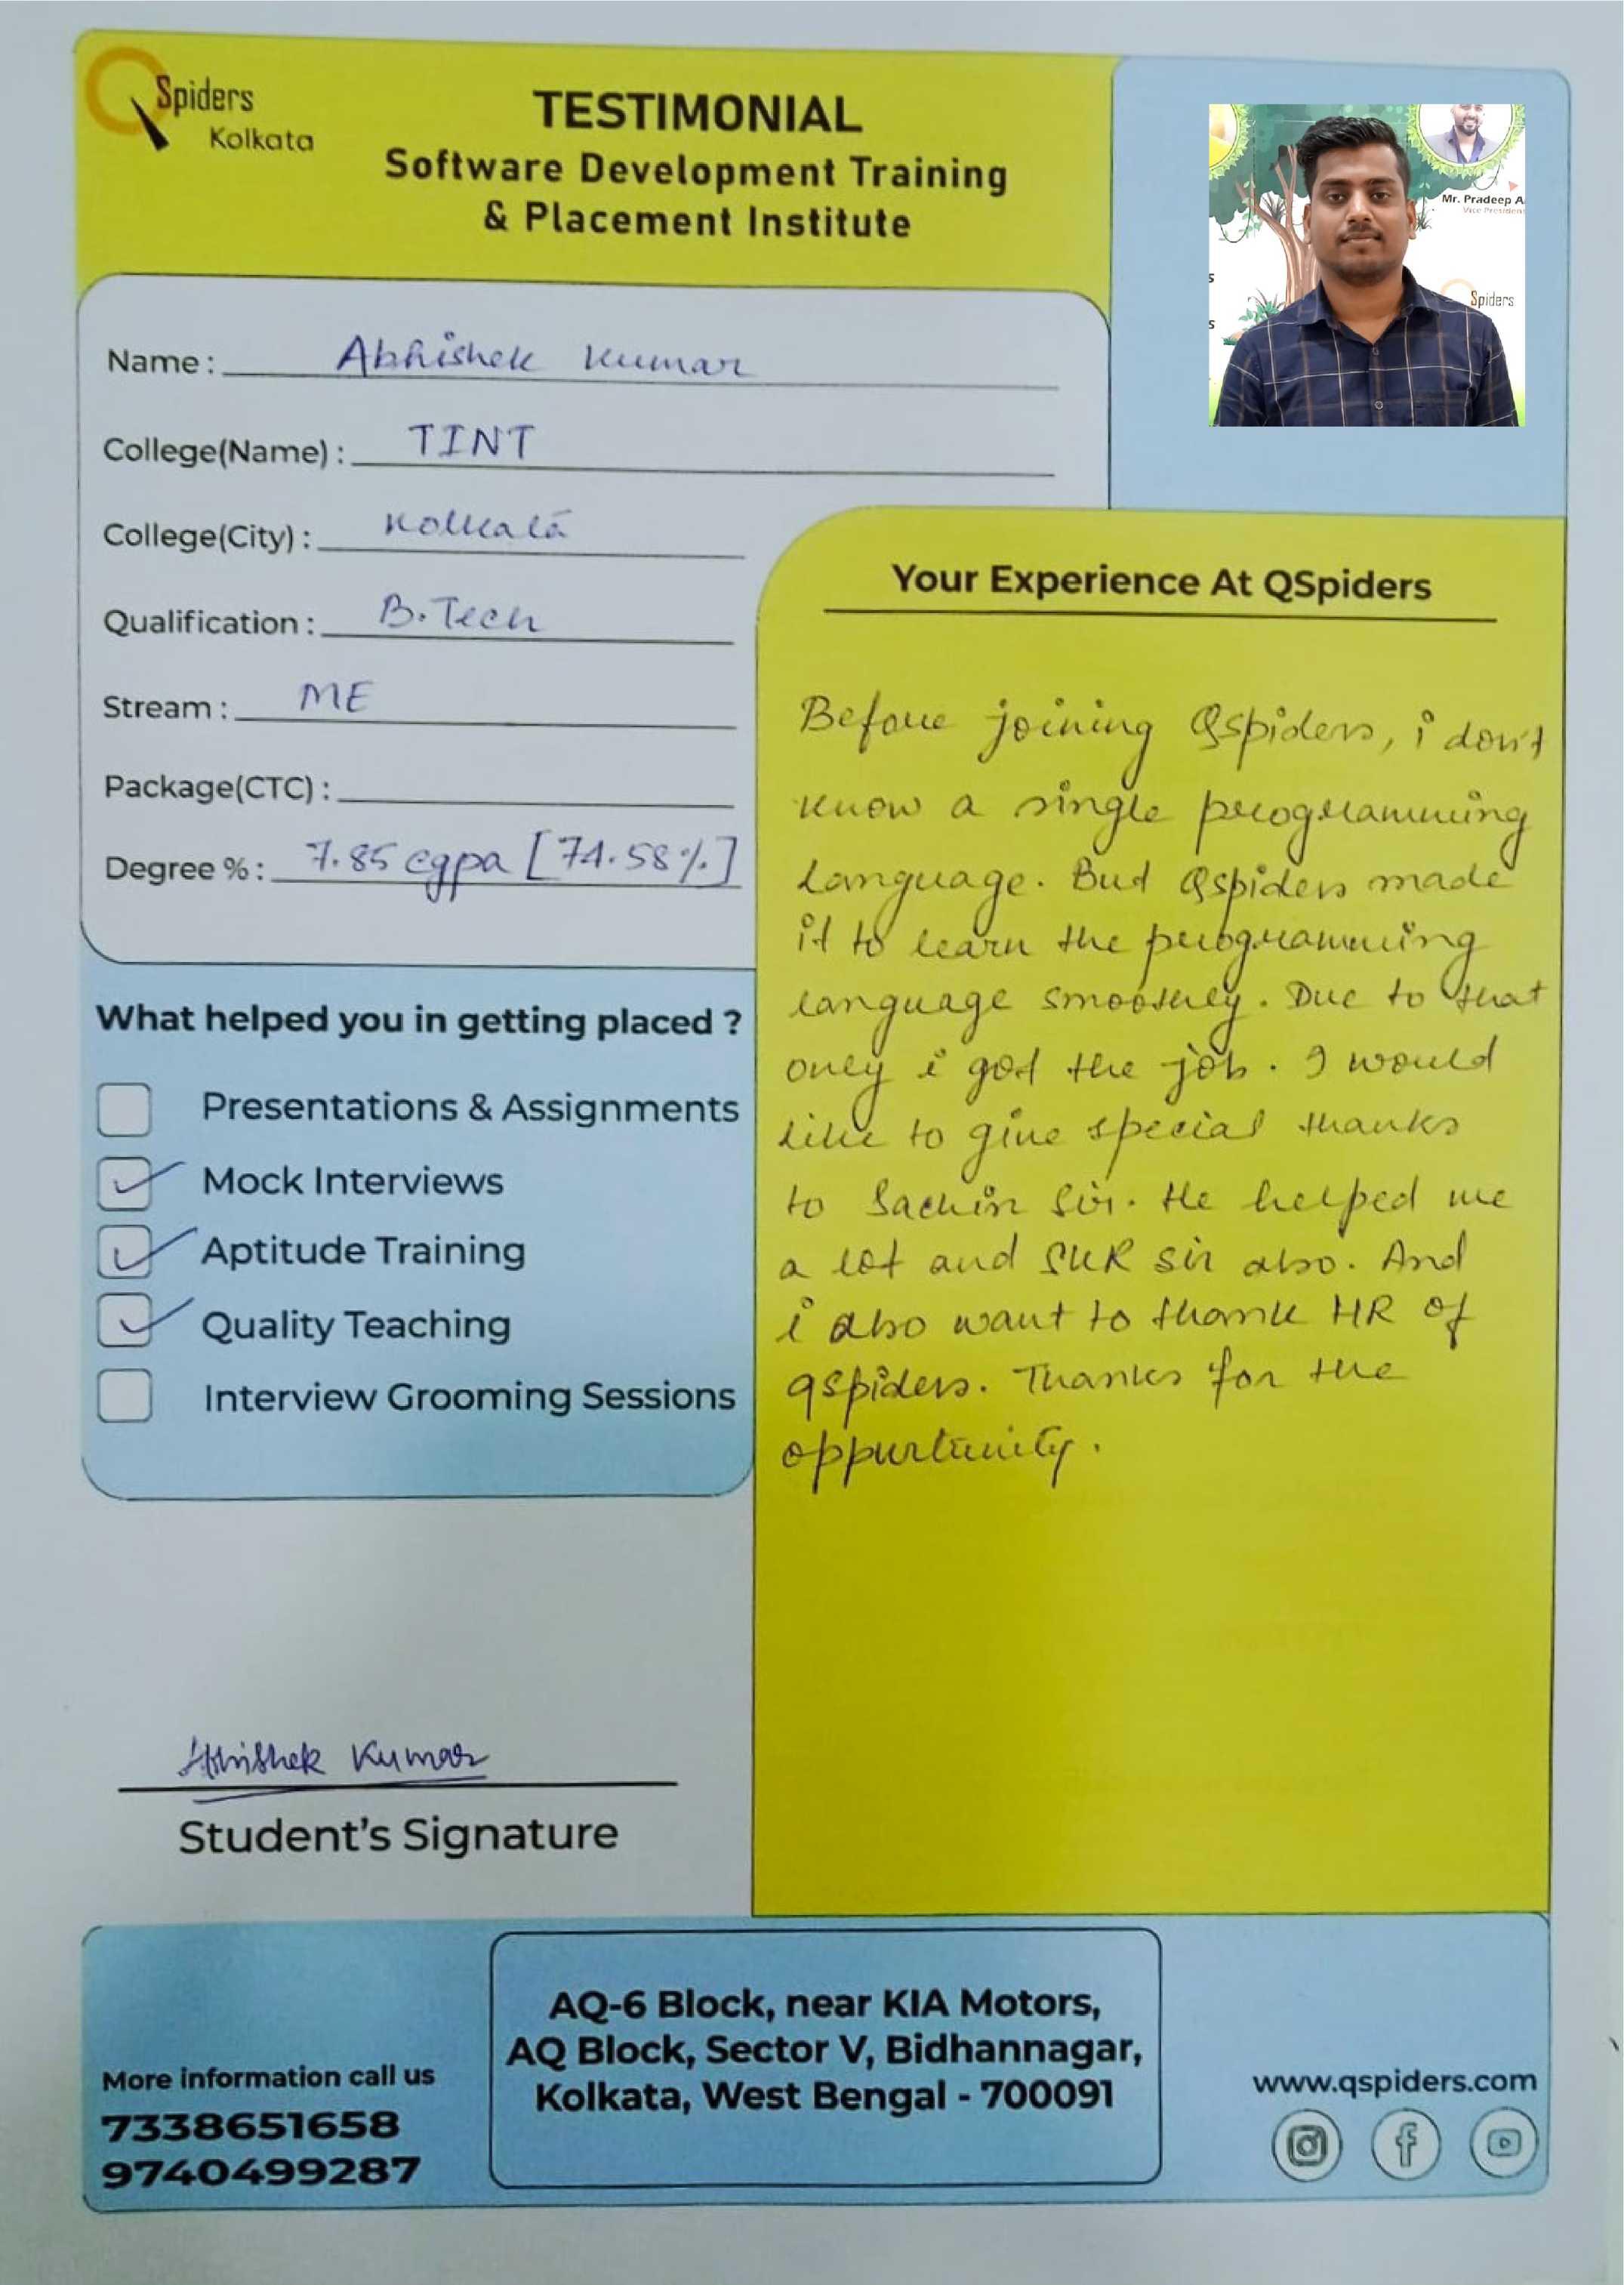 QSpiders
Kolkata
TESTIMONIAL
Software Development Training
& Placement Institute
Mr. Pradeep A
Vice President
s
s
Spiders
Name : Abhishek Kumar
College(Name) : TINT
College(City) : Kolkata
Qualification : B.Tech
Stream : ME
Package(CTC) :
Degree % : 7.85 cgpa [74.58%]
What helped you in getting placed ?
Presentations & Assignments
Mock Interviews
Aptitude Training
Quality Teaching
Interview Grooming Sessions
Your Experience At QSpiders
Before joining Qspiders, i don't
know a single programming
language. But Qspiders made
it to learn the programming
language smoothly. Due to that
only i got the job. I would
like to give special thanks
to Sachin Sir. He helped me
a lot and SKR sir also. And
i also want to thank HR of
qspiders. Thanks for the
oppurtunity.
Abhishek Kumar
Student's Signature
More information call us
7338651658
9740499287
AQ-6 Block, near KIA Motors,
AQ Block, Sector V, Bidhannagar,
Kolkata, West Bengal - 700091
www.qspiders.com